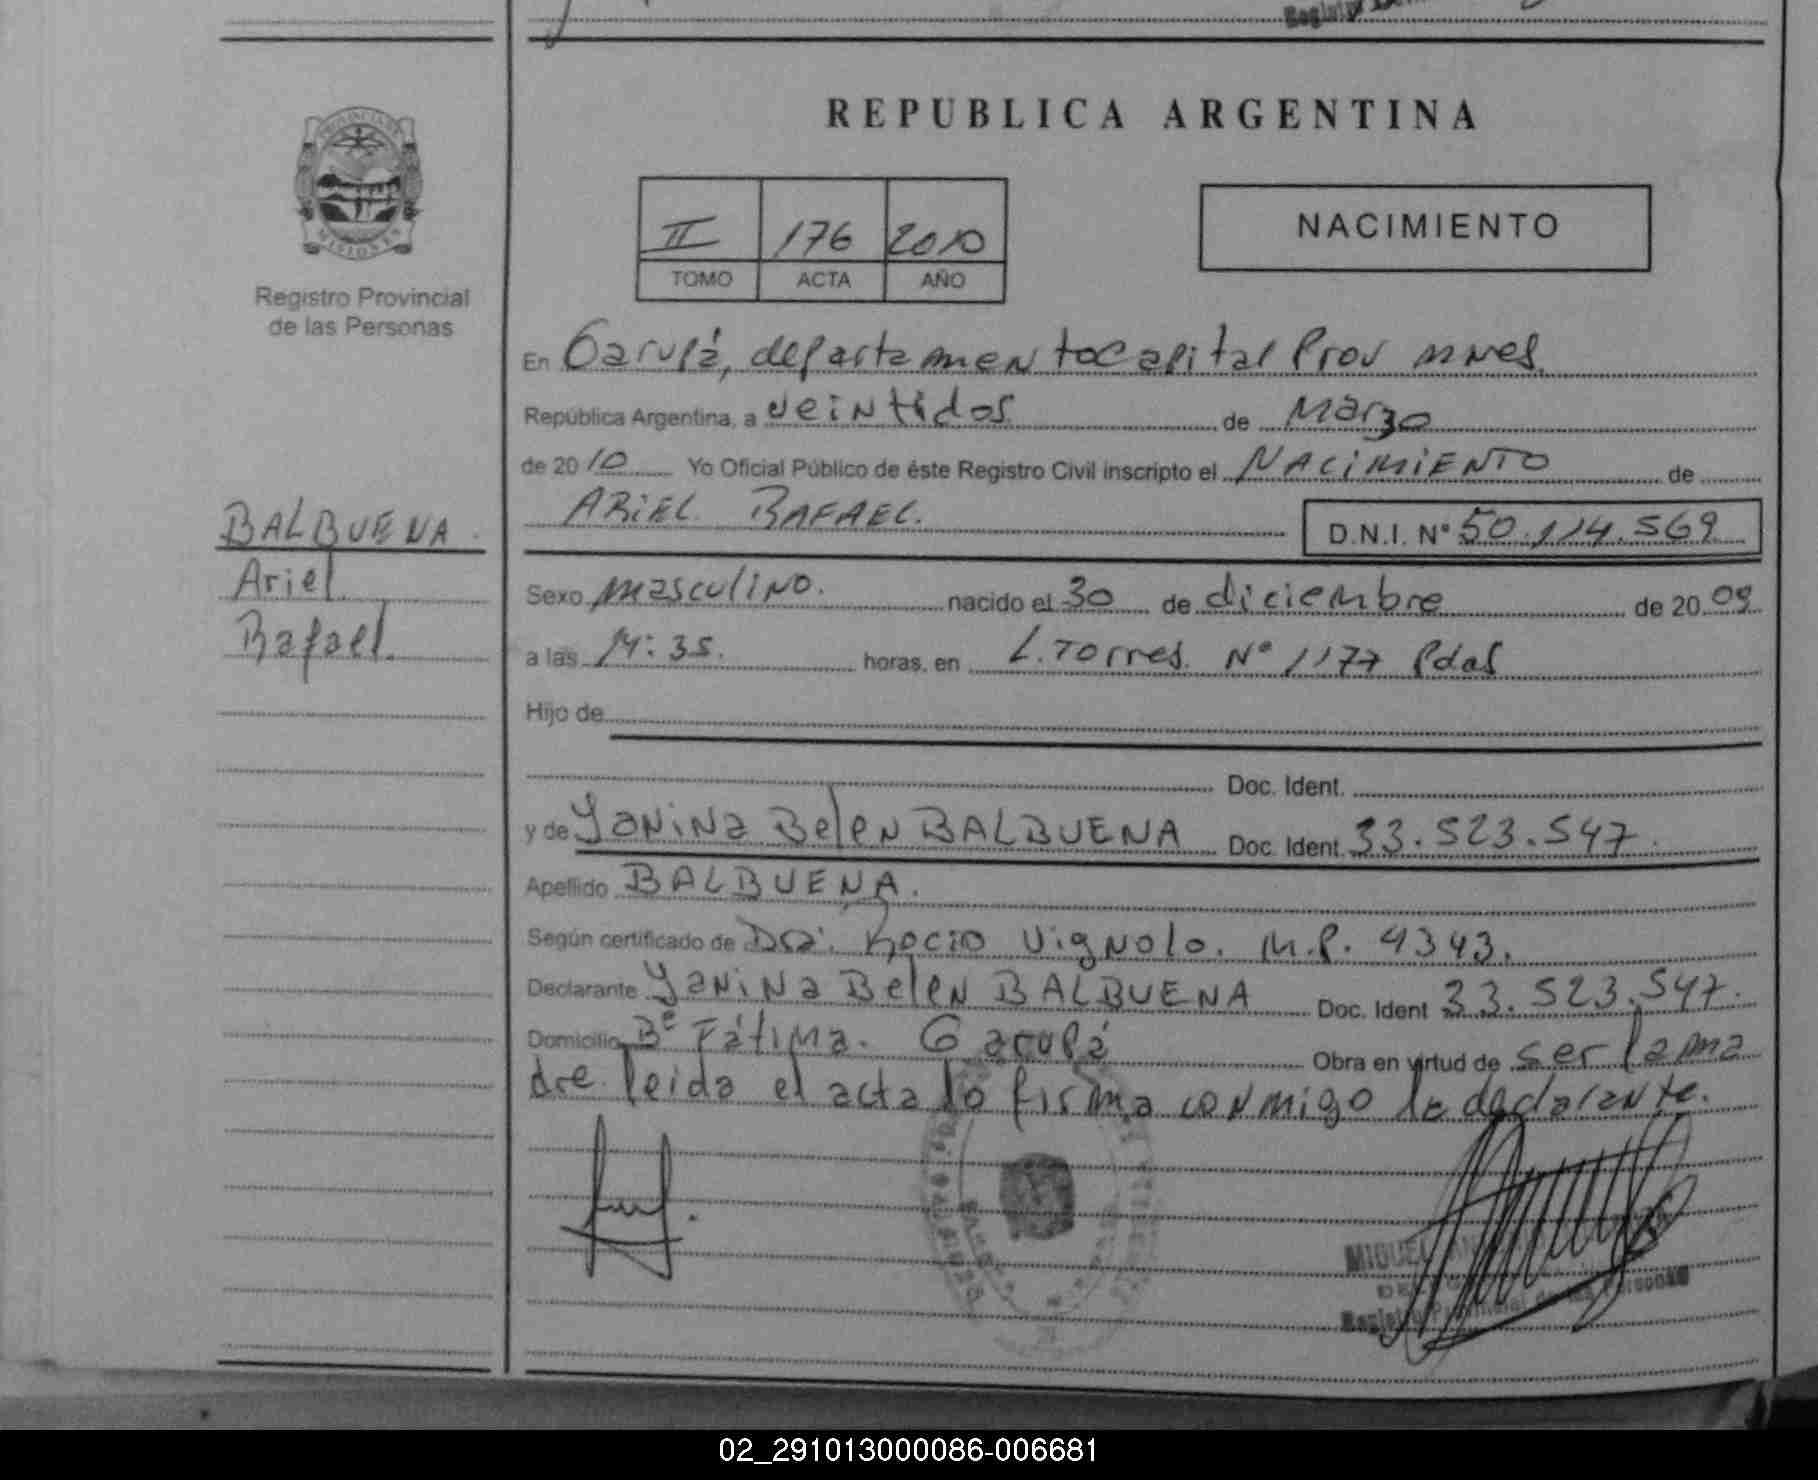 REPUBLICA ARGENTINA
PROVINCIA DE
MISIONES
Registro Provincial
de las Personas
II 176 2010
TOMO ACTA AÑO
NACIMIENTO
En Garupá, departamento Capital Prov mnes.
República Argentina, a veintidos de Marzo
de 2010 Yo Oficial Público de éste Registro Civil inscripto el NACIMIENTO de
ARIEL RAFAEL. D.N.I. N° 50.114.569
BALBUENA.
Ariel
Rafael.
Sexo masculino. nacido el 30 de diciembre de 2009
a las 14:35. horas, en L. Torres. N° 1177 Pdas
Hijo de
Doc. Ident.
y de Yanina Belen BALBUENA Doc. Ident. 33.523.547.
Apellido BALBUENA.
Según certificado de Dra. Rocio Vignolo. M.P. 4343.
Declarante Yanina Belen BALBUENA Doc. Ident 33.523.547.
Domicilio B° Fátima. Garupá Obra en virtud de ser la ma
dre. leida el acta lo firma conmigo la declarante.
MIGUEL
Registro Provincial de las Personas
02_291013000086-006681